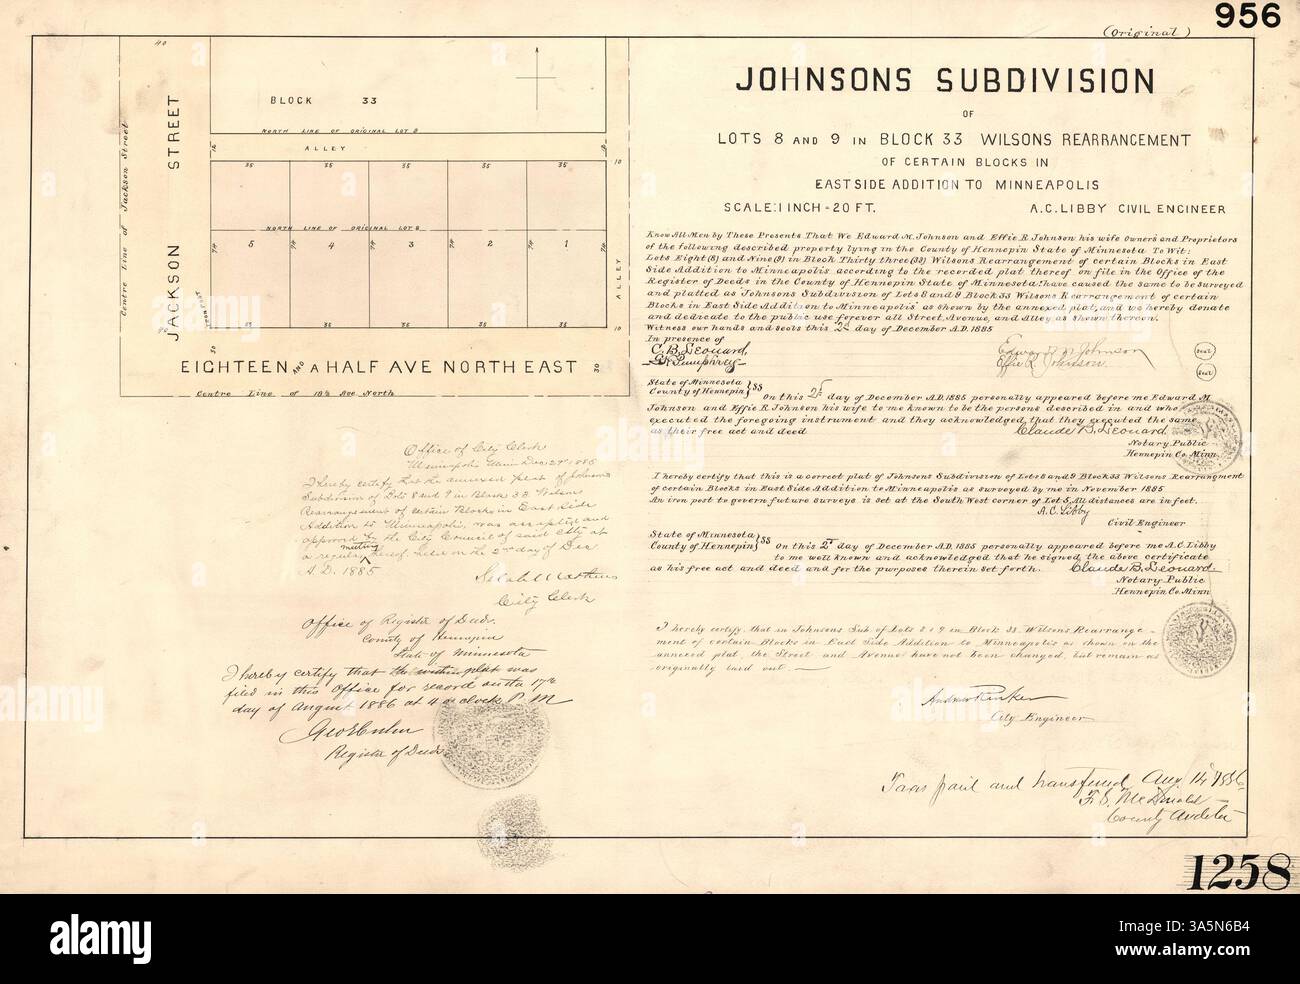 956
(Original)
JOHNSONS SUBDIVISION
OF
LOTS 8 AND 9 IN BLOCK 33 WILSONS REARRANGEMENT
OF CERTAIN BLOCKS IN
EAST SIDE ADDITION TO MINNEAPOLIS
SCALE: 1 INCH = 20 FT. A.C. LIBBY CIVIL ENGINEER
Know All Men by These Presents That We Edward M. Johnson and Effie R. Johnson his wife Owners and Proprietors
of the following described property lying in the County of Hennepin State of Minnesota To Wit:
Lots Eight (8) and Nine (9) in Block Thirty three (33) Wilsons Rearrangement of certain Blocks in East
Side Addition to Minneapolis according to the recorded plat thereof on file in the Office of the
Register of Deeds in the County of Hennepin State of Minnesota: have caused the same to be surveyed
and platted as Johnsons Subdivision of Lots 8 and 9 Block 33 Wilsons Rearrangement of certain
Blocks in East Side Addition to Minneapolis as shown by the annexed plat, and we hereby donate
and dedicate to the public use forever all Street, Avenue, and Alley as shown thereon.
Witness our hands and seals this 2d day of December A.D. 1885
In presence of
C. B. Leonard Edward M Johnson Seal
Pumphrey Effie R. Johnson Seal
State of Minnesota
County of Hennepin } SS On this 2d day of December A.D. 1885 personally appeared before me Edward M.
Johnson and Effie R. Johnson his wife to me known to be the persons described in and who
executed the foregoing instrument and they acknowledged that they executed the same
as their free act and deed Claude B. Leonard
Notary Public
Hennepin Co. Minn.
I hereby certify that this is a correct plat of Johnsons Subdivision of Lots 8 and 9 Block 33 Wilsons Rearrangment
of certain Blocks in East Side Addition to Minneapolis as surveyed by me in November 1885
An iron post to govern future surveys is set at the South West corner of Lot 5, All distances are in feet.
A.C. Libby
Civil Engineer
State of Minnesota
County of Hennepin } SS On this 2d day of December A.D. 1885 personally appeared before me A.C. Libby
to me well known and acknowledged that he signed the above certificate
as his free act and deed and for the purposes therein set forth. Claude B. Leonard
Notary Public
Hennepin Co. Minn
I hereby certify that in Johnsons Sub of Lots 8 & 9 in Block 33 Wilsons Rearrange-
ment of certain Blocks in East Side Addition to Minneapolis as shown in the
annexed plat the Street and Avenue have not been changed, but remain as
originally laid out.
Andrew Rinker
City Engineer
Taxes paid and transferred Aug 14 1886
F. S. McDonald
County Auditor
1258
40
BLOCK 33
NORTH LINE OF ORIGINAL LOT 8
ALLEY
35 35 35 35 35
10
NORTH LINE OF ORIGINAL LOT 9
5 4 3 2 1
74 74 74 74 74
35 35 35 35 35
10
ALLEY
JACKSON STREET
Centre Line of Jackson Street
IRON POST
30
30
EIGHTEEN AND A HALF AVE NORTH EAST
Centre Line of 18½ Ave North
Office of City Clerk
Minneapolis Minn Dec 2d 1885
I hereby certify that the annexed plat of Johnsons
Subdivision of Lots 8 and 9 in Block 33 Wilsons
Rearrangement of certain Blocks in East Side
Addition to Minneapolis, was accepted and
approved by the City Council of said City at
a regular meeting thereof held on the 2nd day of Dec
A.D. 1885
City Clerk
Office of Register of Deeds.
County of Hennepin
State of Minnesota
I hereby certify that the within plat was
filed in this Office for record on the 17th
day of August 1886 at 4 o'clock P. M
Register of Deeds
alamy
Image ID: 3A5N6B4
www.alamy.com